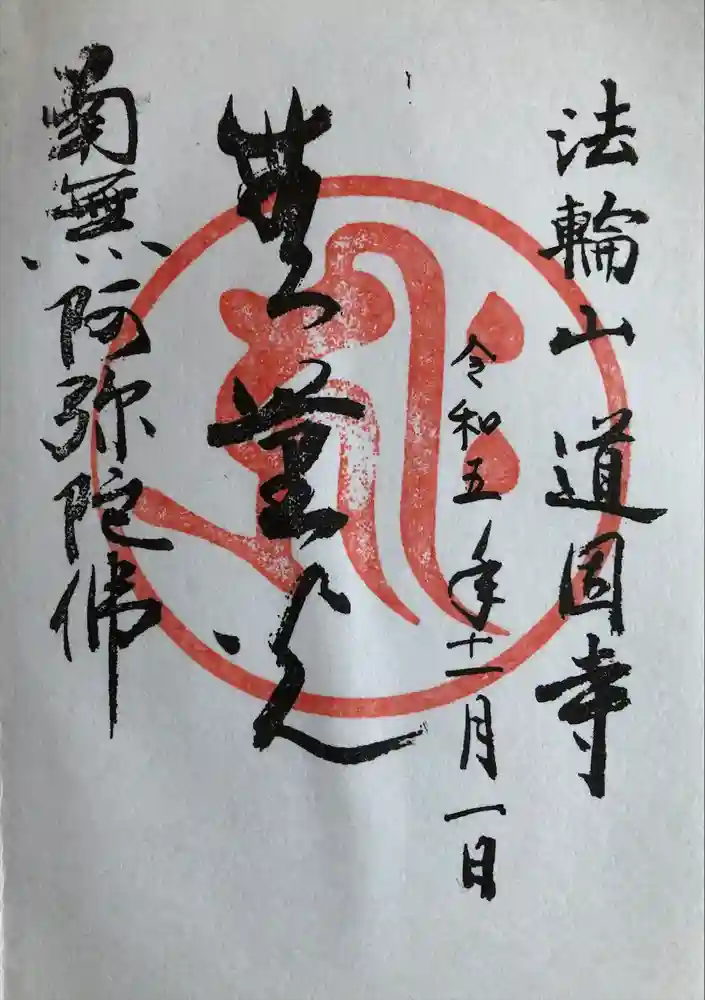 法輪山 道寺
令和五年十一月一日
無量光
南無阿弥陀佛